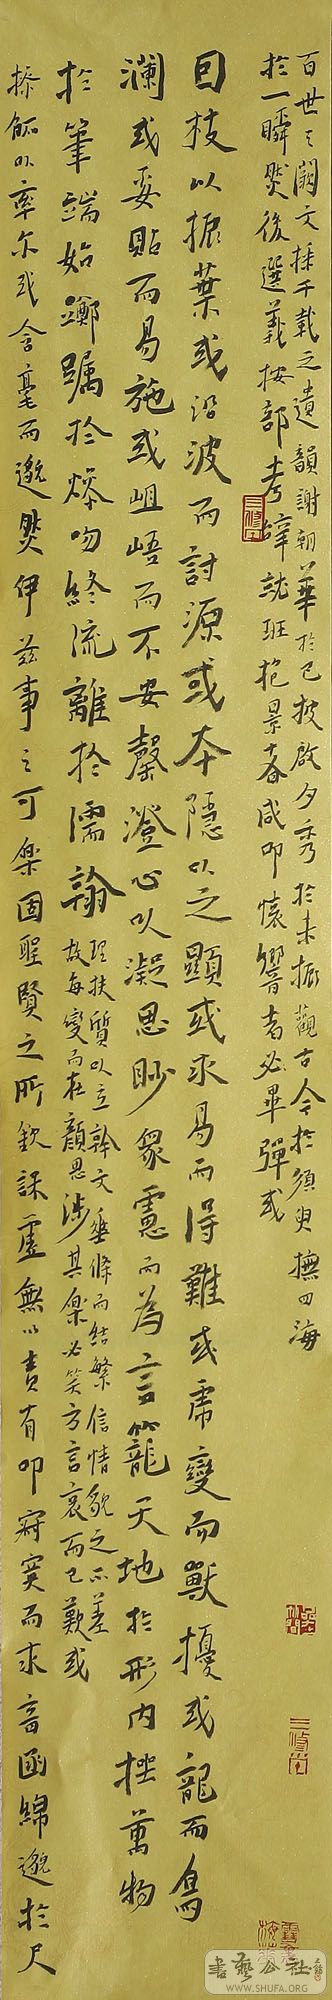 百世之闕文採千載之遺韻謝朝華於已披啟夕秀於未振觀古今於須臾撫四海
於一瞬然後選義按部考辭就班抱景者咸叩懷響者必畢彈或
因枝以振葉或沿波而討源或本隱以之顯或求易而得難或虎變而獸擾或龍而鳥
瀾或妥貼而易施或岨峿而不安罄澄心以凝思眇眾慮而為言籠天地於形內挫萬物
於筆端始躑躅於燥吻終流離於濡翰
理扶質以立幹文垂條而結繁信情貌之不差
故每變而在顏思涉其樂必笑方言哀而已歎或
操觚以率尔或含毫而邈然伊茲事之可樂固聖賢之所欽課虛無以責有叩寂寞而求音函綿邈於尺
三修堂
三修堂
書藝公社
WWW.SHUFA.ORG